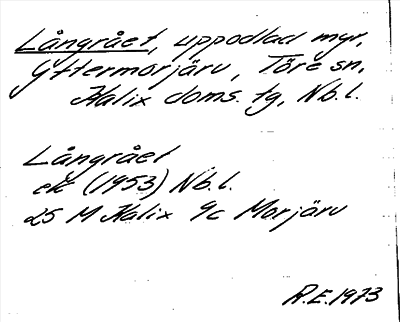 Långrået, uppodlad myr,
Yttermorjärv, Töre sn,
Kalix doms. tg, Nb.l.
Långrået
ek (1953) Nb.l.
25 M Kalix 9c Morjärv
R.E. 1973